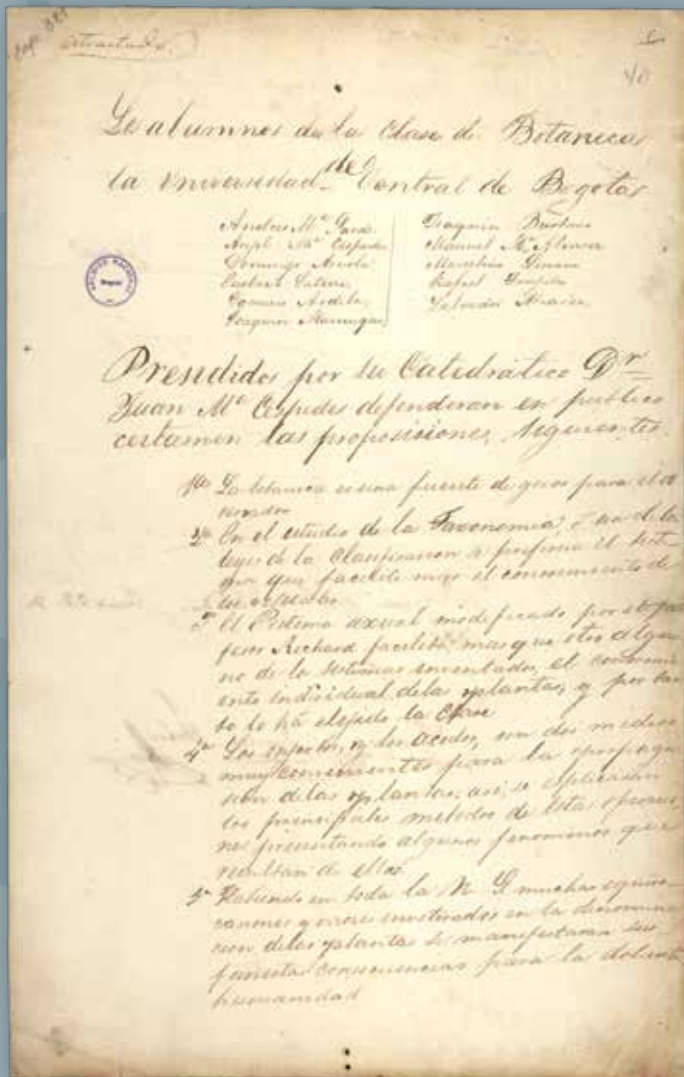 extractado
40
Los alumnos de la Clase de Botanica
la Universidad de Central de Bogotá
Andres Mª
Anjel Mª Cespedes
Domingo
Joaquin
Manuel Mª
Rafael
Salvador
Joaquin
Presididos por su Catedratico Dr
Juan Mª Cespedes defenderan en publico
certamen las proposiciones siguientes.
1ª La botanica es una fuente de goces para el
2ª En el estudio de la Taxonomia, ó sea de la
de la Clasificacion se prefiere el siste-
ma que facilite mas el conocimiento de
los vejetales
3ª El Sistema sexual modificado por el pro
fesor Richard facilita mas que otro algu
no de los sistemas inventados, el conocimi
ento individual de las plantas, y por tan
to lo há elejido la Clase
4ª Los injertos, y los acodos, son dos medios
muy convenientes para la propaga
sion de las plantas; asi, se esplicarán
los principales metodos de esta operacio
nes presentando algunos fenomenos que
resultan de ellos
5ª Habiendo en toda la N. G. muchas equivo-
caciones y errores envejecidos en la denomina
cion de las plantas se manifestaran sus
funestas consecuencias para la doliente
humanidad